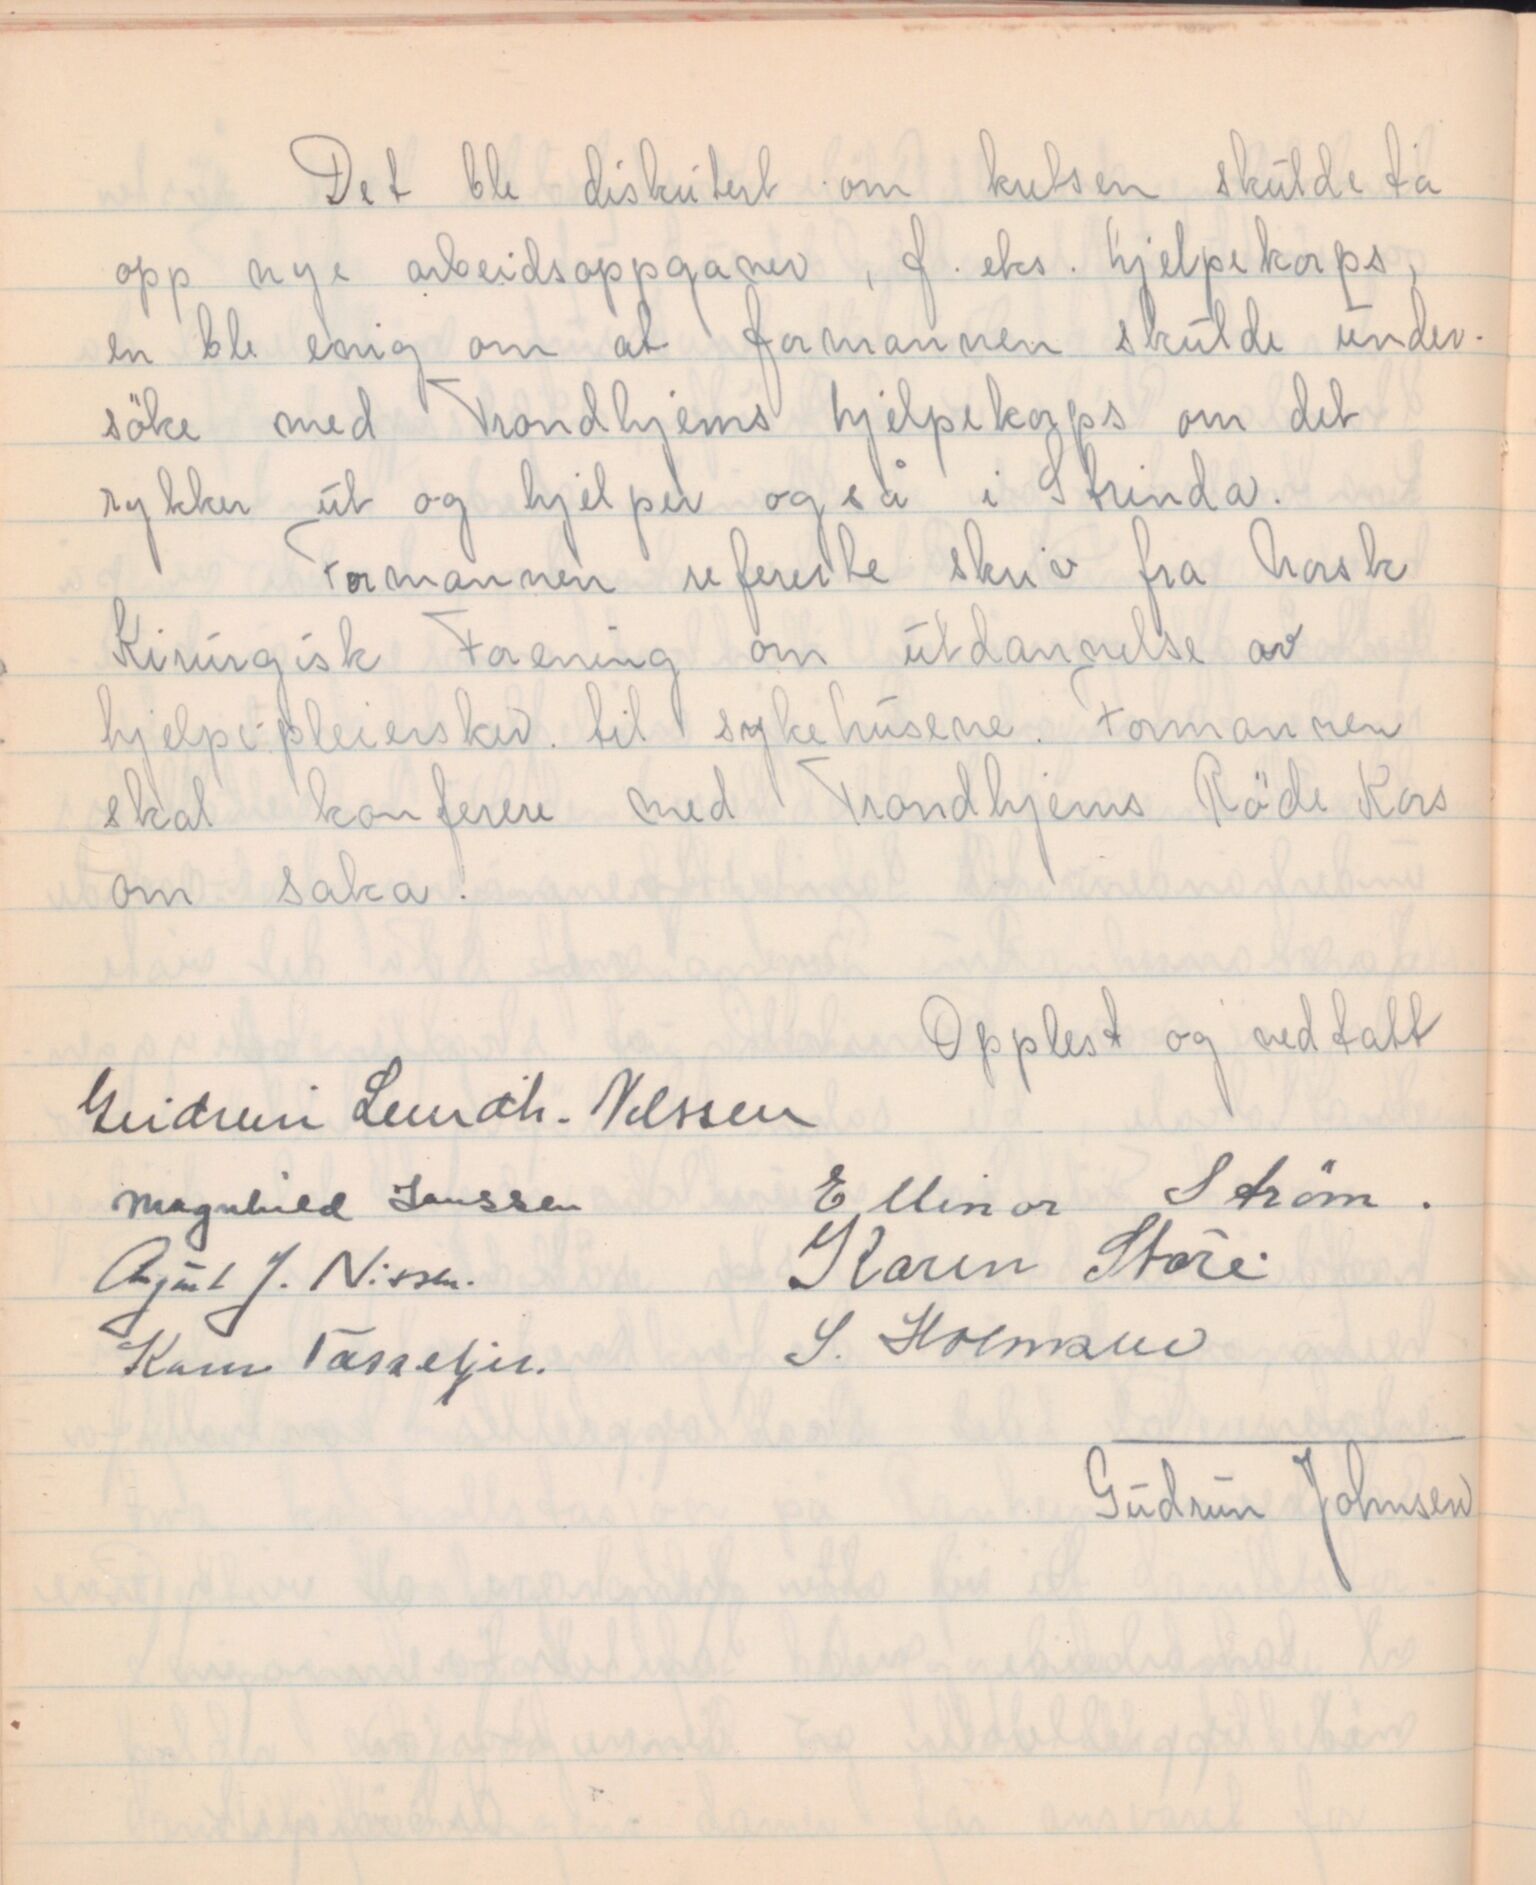 Det ble diskutert om kretsen skulde ta
opp nye arbeidsoppgaver, f. eks. hjelpekorps,
en ble enig om at formannen skulde under-
söke med Trondhjems hjelpekorps om det
rykker ut og hjelper også i Strinda.
Formannen refererte skriv fra Norsk
Kirurgisk Forening om utdannelse av
hjelpe-pleiersker til sykehusene. Formannen
skal konferere med Trondhjems Röde Kors
om saka.
Opplest og vedtatt
Gudrun Lundh-Nilssen
Magnhild Janssen Ellinor Ström.
August J. Nissen. Karen Støre.
Karen S. Holmsen
Gudrun Johnsen